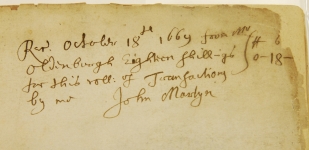 Rec. October 18th 1669 from Mr
Oldenburgh Eighteen shillings
for this voll: of Transactions
by me John Martyn
0-18-